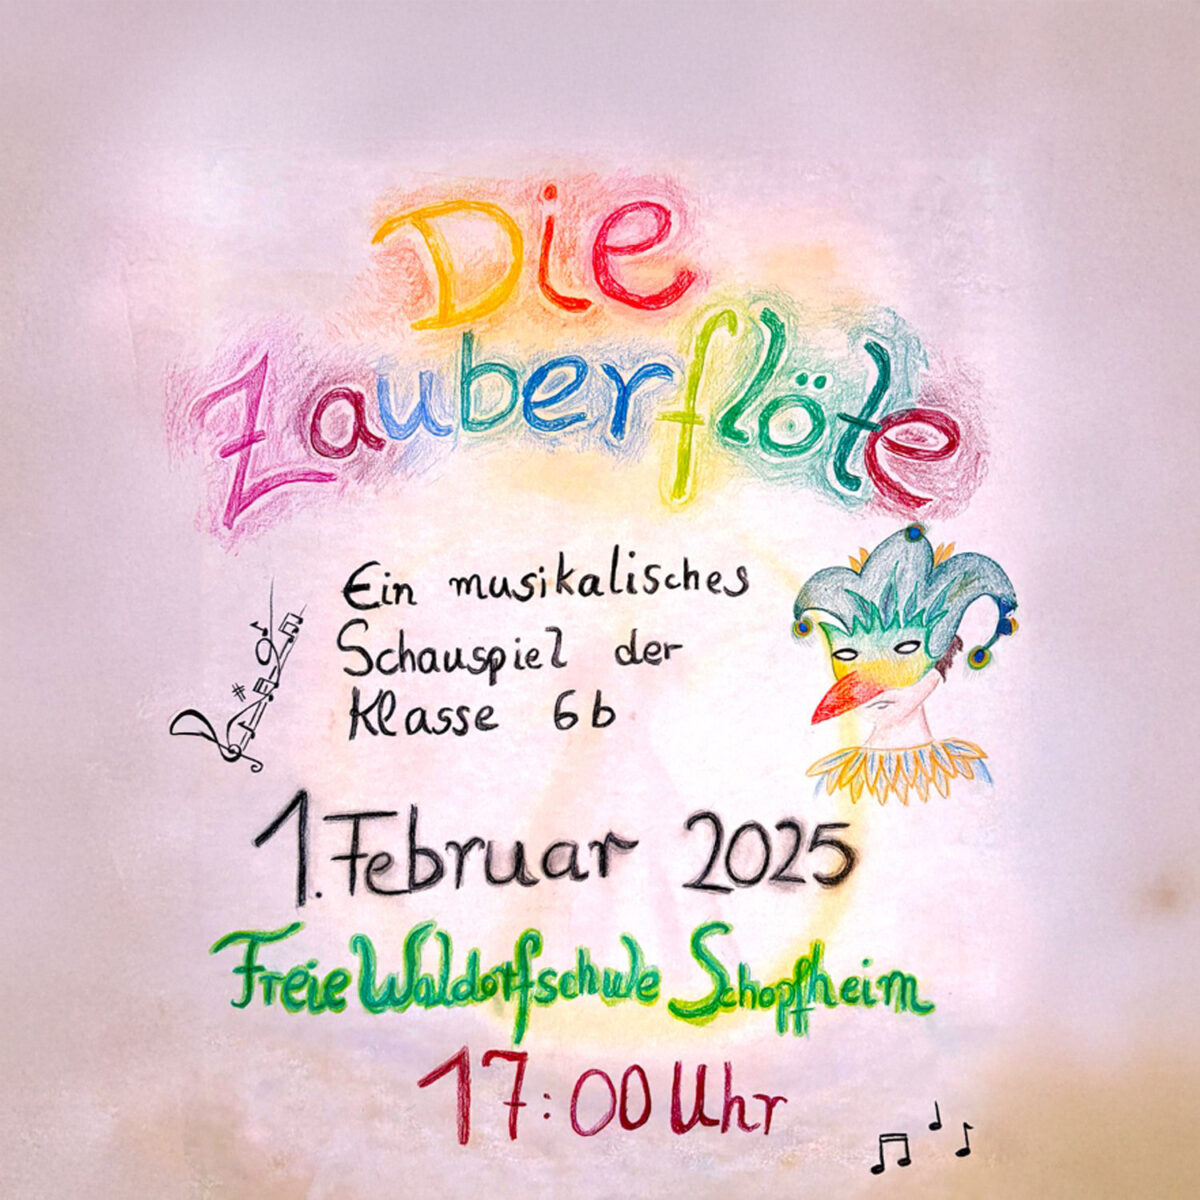 Die
Zauberflöte
Ein musikalisches
Schauspiel der
Klasse 6b
1. Februar 2025
Freie Waldorfschule Schopfheim
17:00 Uhr